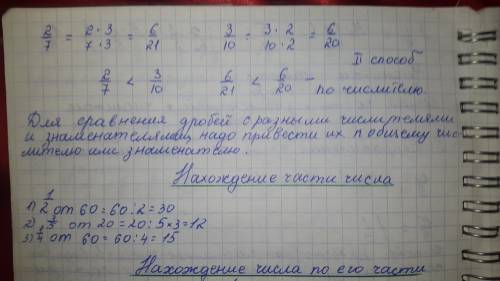 2/7 = 2·3/7·3 = 6/21   3/10 = 3·2/10·2 = 6/20
II способ
2/7 < 3/10   6/21 < 6/20 – по числителю
Для сравнения дробей с разными числителями
и знаменателями надо привести их к общему чис
лителю или знаменателю.
Нахождение части числа
1) 1/2 от 60 = 60 : 2 = 30
2) 3/5 от 20 = 20 : 5 × 3 = 12
3) 1/4 от 60 = 60 : 4 = 15
Нахождение числа по его части